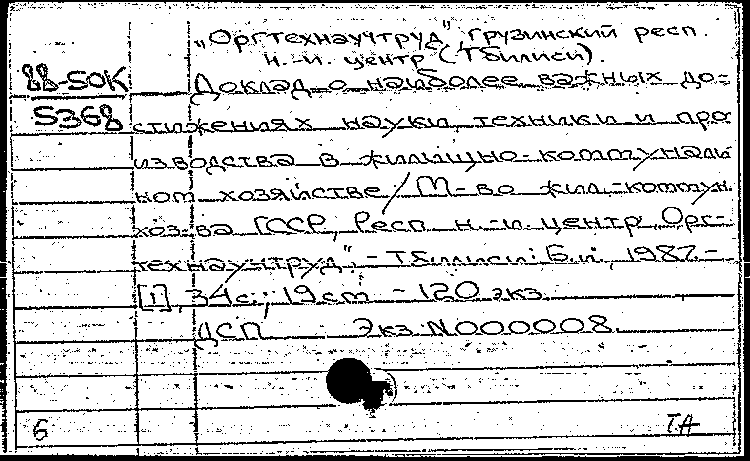 „Оргтехнаучтруд", грузинский респ.
н.-и. центр (Тбилиси).
88-50К
5368
Доклад о наиболее важных до-
стижениях науки, техники и про
изводства в жилищно-коммуналь
ном хозяйстве / М-во жил.-коммун.
хоз-ва ГССР, Респ. н.-и. центр „Орг-
технаучтруд", - Тбилиси: Б.и., 1987. -
[1], 34 с.; 19 см - 120 экз.
ДСП Экз. N000008.
6 ТА